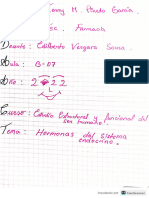 Jenny M. Prado García.
Téc. Farmacia
Docente: Edilberto Vergara Sama.
Aula: B-07
Año: 2022
Curso: Estudio Estructural y funcional del
ser humano.
Tema: Hormonas del sistema
endocrino.